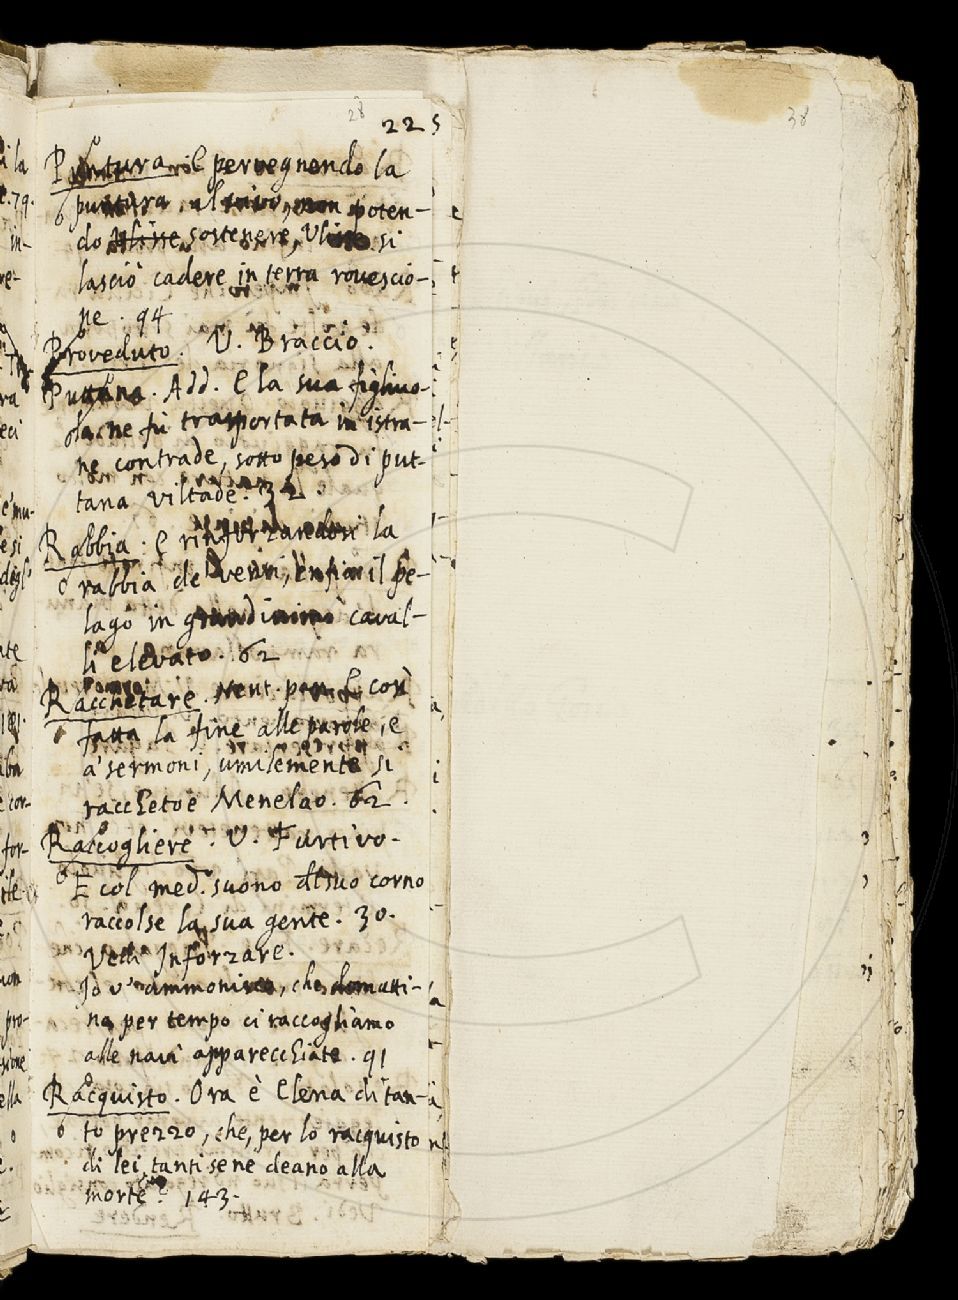 28
225
38
Puntura. il pervegnendo la
puntura al vivo, non poten-
do Ulisse sostenere, Ulisse si
lasciò cadere in terra rovescio-
ne. 94
Proveduto. V. Braccio.
Puttana. Add. E la sua figliuo-
la ne fù trasportata in istra-
ne contrade, sotto peso di put-
tana viltade. 32.
Rabbia. E rinforzandosi la
rabbia de' venti, enfiasi il pe-
lago in grandissimo caval-
li elevato. 62
Racchetare. Neut. pass. E così
fatta la fine alle parole, e
a' sermoni, umilemente si
racchetoe Menelao. 62.
Raccogliere. V. Furtivo.
E col med. suono del suo corno
raccolse la sua gente. 30.
Vedi Inforzare.
Io v' ammonisco, che domatti-
na per tempo ci raccogliamo
alle navi apparecchiate. 91
Racquisto. Ora è Elena di tan-
to prezzo, che, per lo racquisto
di lei, tanti se ne deano alla
morte? 143.